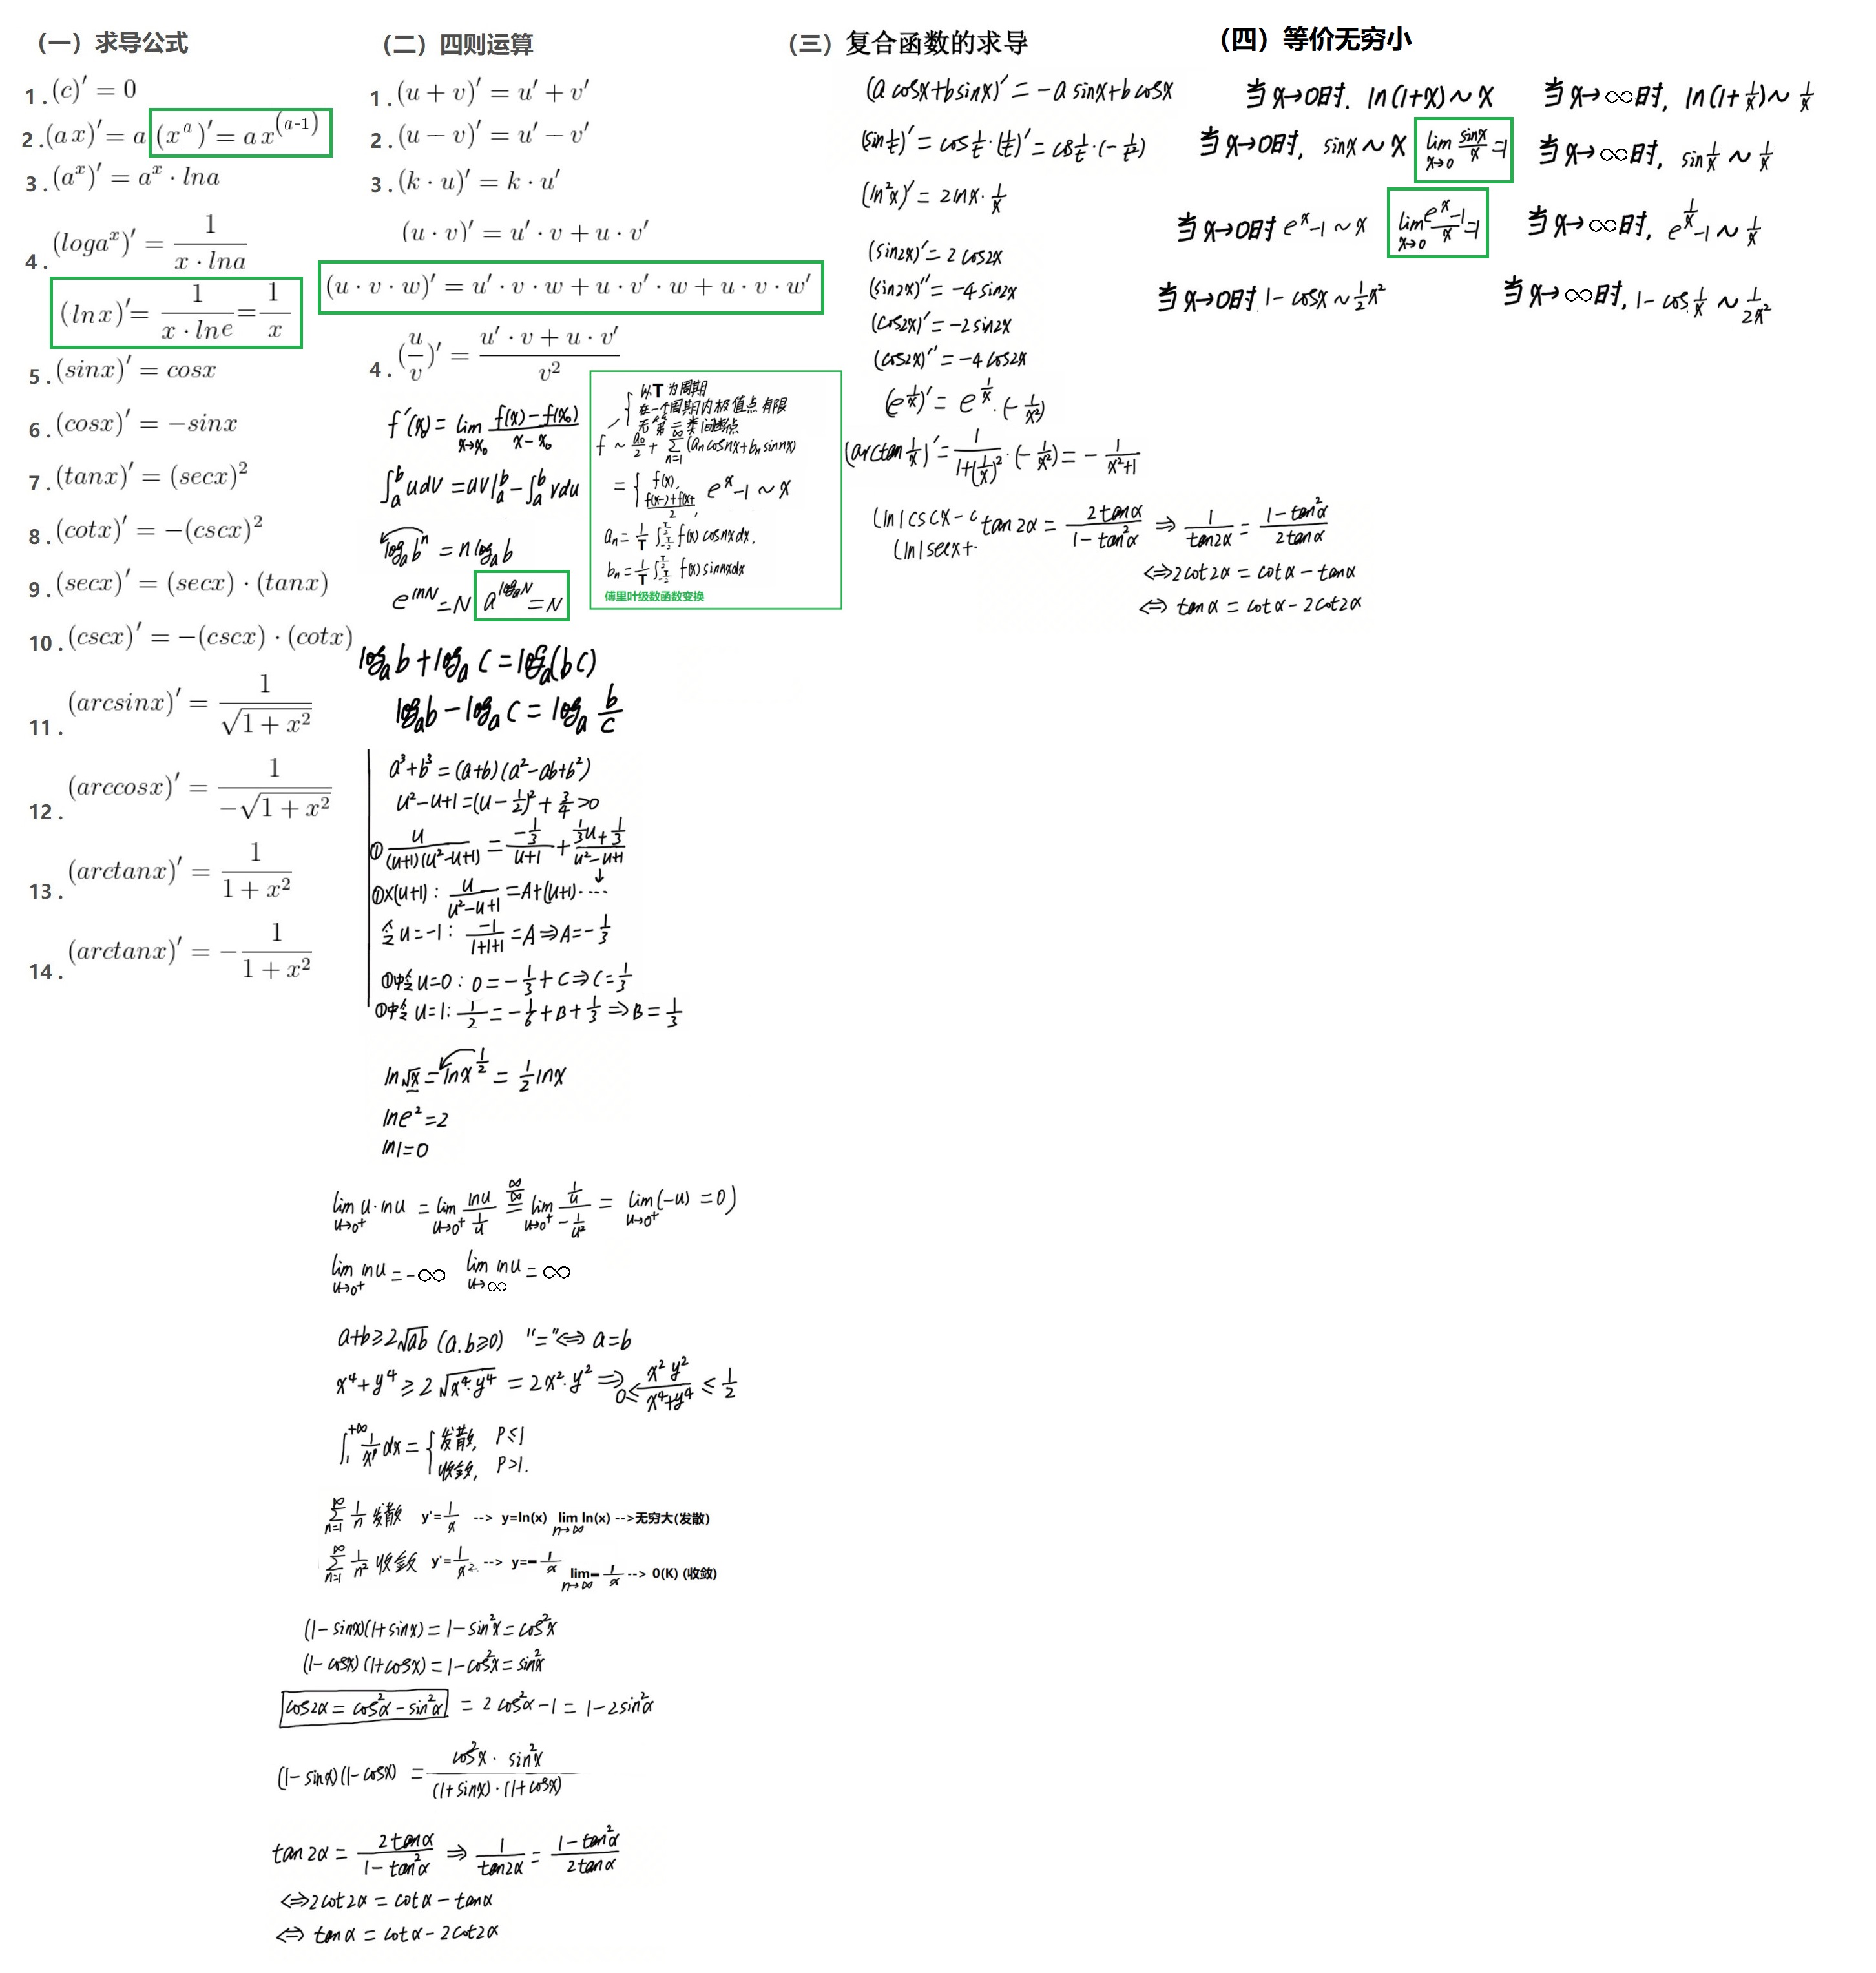 （一）求导公式
1.(c)′ = 0
2.(ax)′ = a (x^a)′ = ax^(a-1)
3.(a^x)′ = a^x · lna
4.(loga^x)′ = 1/(x · lna)
(lnx)′ = 1/(x · lne) = 1/x
5.(sinx)′ = cosx
6.(cosx)′ = −sinx
7.(tanx)′ = (secx)²
8.(cotx)′ = −(cscx)²
9.(secx)′ = (secx) · (tanx)
10.(cscx)′ = −(cscx) · (cotx)
11.(arcsinx)′ = 1/√(1 + x²)
12.(arccosx)′ = 1/(−√(1 + x²))
13.(arctanx)′ = 1/(1 + x²)
14.(arctanx)′ = −1/(1 + x²)
（二）四则运算
1.(u + v)′ = u′ + v′
2.(u − v)′ = u′ − v′
3.(k · u)′ = k · u′
(u · v)′ = u′ · v + u · v′
(u · v · w)′ = u′ · v · w + u · v′ · w + u · v · w′
4.(u/v)′ = (u′ · v + u · v′)/v²
f′(x₀) = lim x→x₀ (f(x)−f(x₀))/(x−x₀)
∫_a^b udv = uv|_a^b − ∫_a^b vdu
log_a b^n = n log_a b
e^lnN = N a^(log_a N) = N
以T为周期
在一个周期内极值点有限
无第二类间断点
f ~ a₀/2 + Σ_{n=1}^∞ (a_n cosnx + b_n sinnx)
= { f(x),
(f(x-)+f(x+))/2, e^x−1 ~ x
a_n = 1/T ∫_{-T/2}^{T/2} f(x) cosnx dx.
b_n = 1/T ∫_{-T/2}^{T/2} f(x) sinnx dx
傅里叶级数函数变换
log_a b + log_a c = log_a (bc)
log_a b − log_a c = log_a b/c
a³+b³ = (a+b)(a²−ab+b²)
u²−u+1 = (u−1/2)² + 3/4 >0
① u/((u+1)(u²−u+1)) = (−1/3)/(u+1) + (1/3u+1/3)/(u²−u+1)
①×(u+1): u/(u²−u+1) = A+(u+1)·····
令u=−1: −1/(1+1+1) = A ⇒ A=−1/3
①中令u=0: 0=−1/3+C ⇒ C=1/3
①中令u=1: 1/2 = −1/6+B+1/3 ⇒ B=1/3
ln√x = lnx^(1/2) = 1/2 lnx
lne²=2
ln1=0
lim u→0⁺ u·lnu = lim u→0⁺ lnu/(1/u) =(∞/∞) lim u→0⁺ (1/u)/(−1/u²) = lim u→0⁺ (−u) = 0)
lim u→0⁺ lnu = −∞ lim u→∞ lnu = ∞
a+b≥2√ab (a,b≥0) "="⇔ a=b
x⁴+y⁴ ≥ 2√(x⁴·y⁴) = 2x²·y² ⇒ 0≤ x²y²/(x⁴+y⁴) ≤ 1/2
∫_1^{+∞} 1/x^p dx = { 发散, P≤1
收敛, P>1.
Σ_{n=1}^∞ 1/n 发散 y'=1/x --> y=ln(x) lim n→∞ ln(x) -->无穷大(发散)
Σ_{n=1}^∞ 1/n² 收敛 y'=1/x² --> y=−1/x lim n→∞ −1/x --> 0(K) (收敛)
(1−sinx)(1+sinx) = 1−sin²x = cos²x
(1−cosx)(1+cosx) = 1−cos²x = sin²x
cos2α = cos²α−sin²α = 2cos²α−1 = 1−2sin²α
(1−sinx)(1−cosx) = (cos²x · sin²x)/((1+sinx)·(1+cosx))
tan2α = 2tanα/(1−tan²α) ⇒ 1/tan2α = (1−tan²α)/2tanα
⇔2cot2α = cotα−tanα
⇔ tanα = cotα−2cot2α
（三）复合函数的求导
(a cosx+b sinx)′ = −a sinx+b cosx
(sin1/t)′ = cos1/t·(1/t)′ = cos1/t·(−1/t²)
(ln²x)′ = 2lnx·1/x
(sin2x)′ = 2cos2x
(sin2x)′′ = −4sin2x
(cos2x)′ = −2sin2x
(cos2x)′′ = −4cos2x
(e^(1/x))′ = e^(1/x)·(−1/x²)
(arctan1/x)′ = 1/(1+(1/x)²)·(−1/x²) = −1/(x²+1)
(ln|cscx−c tan2α = 2tanα/(1−tan²α) ⇒ 1/tan2α = (1−tan²α)/2tanα
(ln|secx+
⇔2cot2α = cotα−tanα
⇔ tanα = cotα−2cot2α
（四）等价无穷小
当x→0时. ln(1+x)~x 当x→∞时, ln(1+1/x)~1/x
当x→0时, sinx~x lim x→0 sinx/x=1 当x→∞时, sin1/x~1/x
当x→0时 e^x−1~x lim x→0 (e^x−1)/x=1 当x→∞时, e^(1/x)−1~1/x
当x→0时 1−cosx~1/2x² 当x→∞时, 1−cos1/x~1/2x²